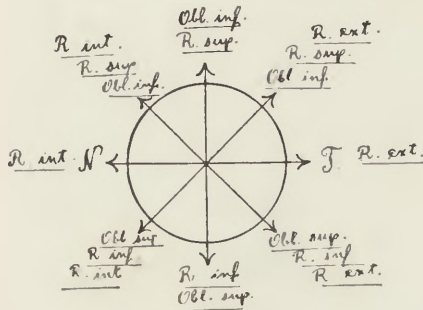 Obl. inf.
R. sup.
R int.
R. sup
Obl. inf.
R. ext.
R. sup.
Obl inf.
R int. N
T R. ext.
Obl sup
R inf
R. int
R, inf
Obl. sup.
Obl. sup.
R. inf
R ext.